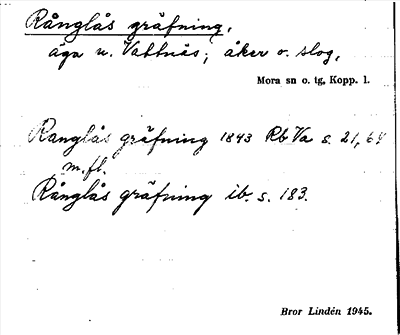 Rånglås gräfning,
äga u. Vattnäs; åker o. slog,
Mora sn o. tg, Kopp. l.
Ranglås gräfning 1843 Rb Va s. 21, 64
m.fl.
Rånglås gräfning ib. s. 183.
Bror Lindén 1945.